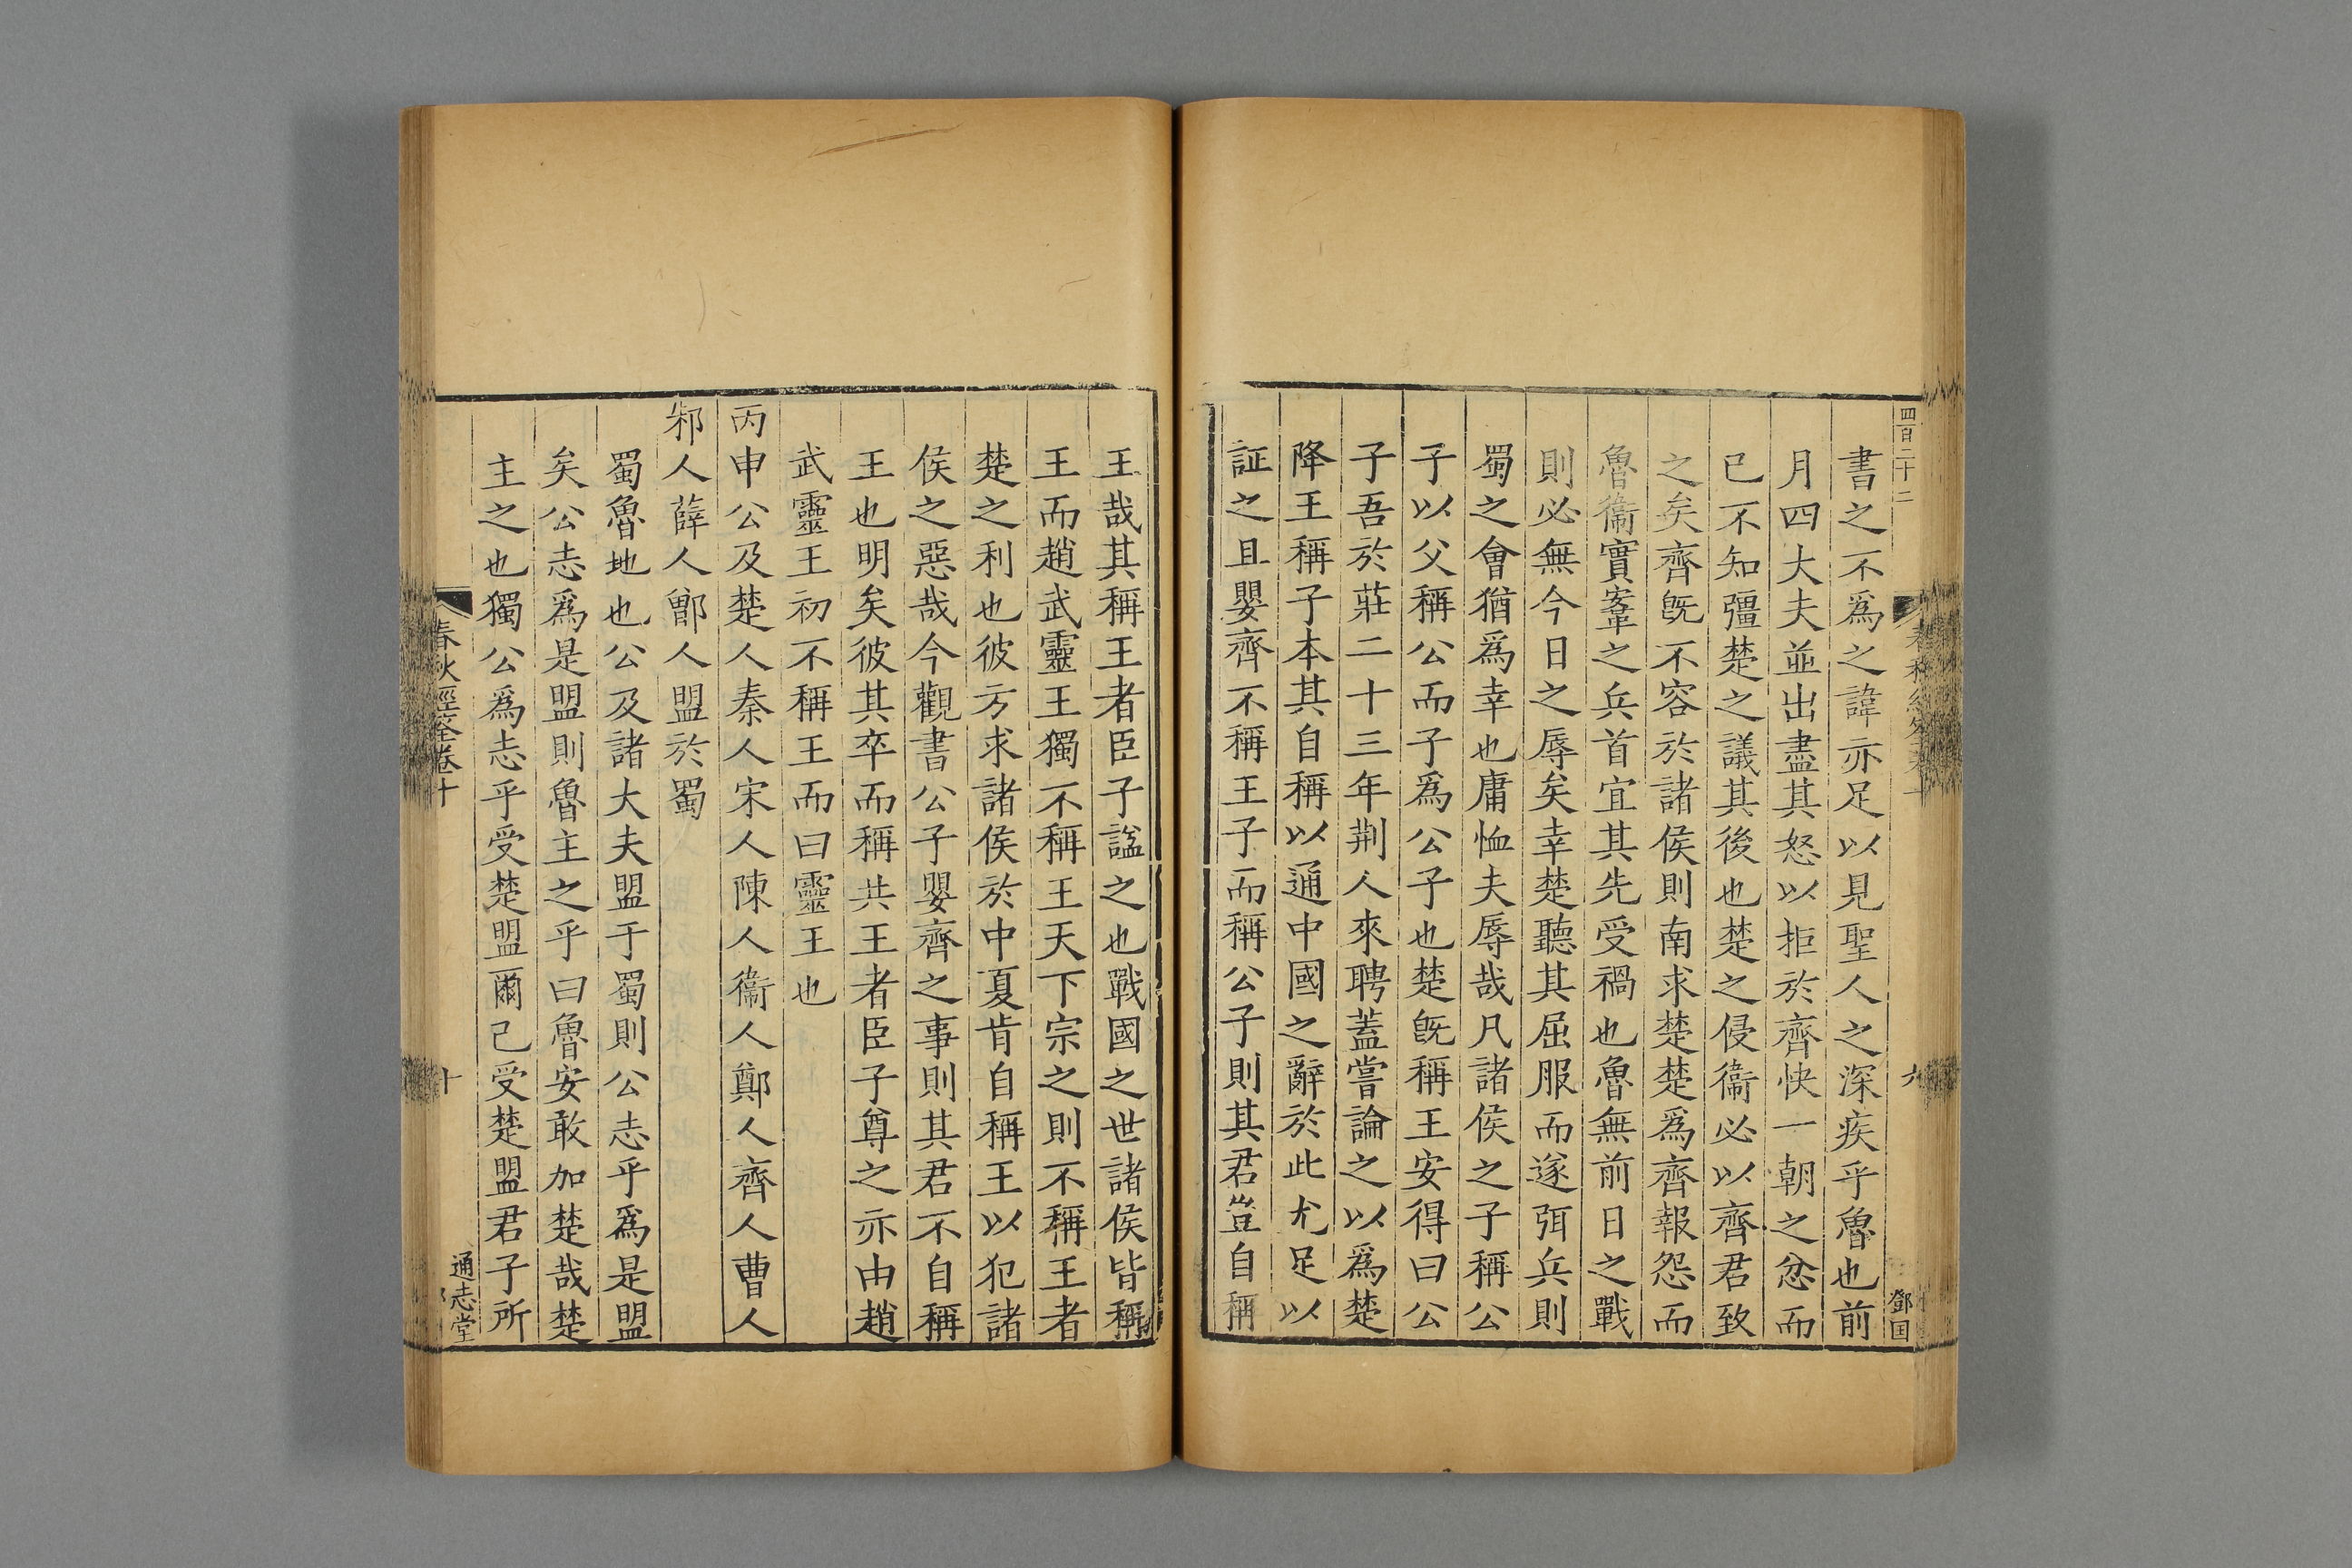 四百二十二
鄧国
書之不爲之諱亦足以見聖人之深疾乎魯也前
月四大夫並出盡其怒以拒於齊快一朝之忿而
已不知彊楚之議其後也楚之侵衞必以齊君致
之矣齊旣不容於諸侯則南求楚楚爲齊報怨而
魯衞實鞌之兵首宜其先受禍也魯無前日之戰
則必無今日之辱矣幸楚聽其屈服而遂弭兵則
蜀之會猶爲幸也庸恤夫辱哉凡諸侯之子稱公
子以父稱公而子爲公子也楚旣稱王安得曰公
子吾於莊二十三年荆人來聘蓋嘗論之以爲楚
降王稱子本其自稱以通中國之辭於此尤足以
証之且嬰齊不稱王子而稱公子則其君豈自稱
王哉其稱王者臣子謚之也戰國之世諸侯皆稱
王而趙武靈王獨不稱王天下宗之則不稱王者
楚之利也彼方求諸侯於中夏肯自稱王以犯諸
侯之惡哉今觀書公子嬰齊之事則其君不自稱
王也明矣彼其卒而稱共王者臣子尊之亦由趙
武靈王初不稱王而曰靈王也
丙申公及楚人秦人宋人陳人衞人鄭人齊人曹人
邾人薛人鄫人盟於蜀
蜀魯地也公及諸大夫盟于蜀則公志乎爲是盟
矣公志爲是盟則魯主之乎曰魯安敢加楚哉楚
主之也獨公爲志乎受楚盟爾已受楚盟君子所
春秋經筌卷十
十
通志堂